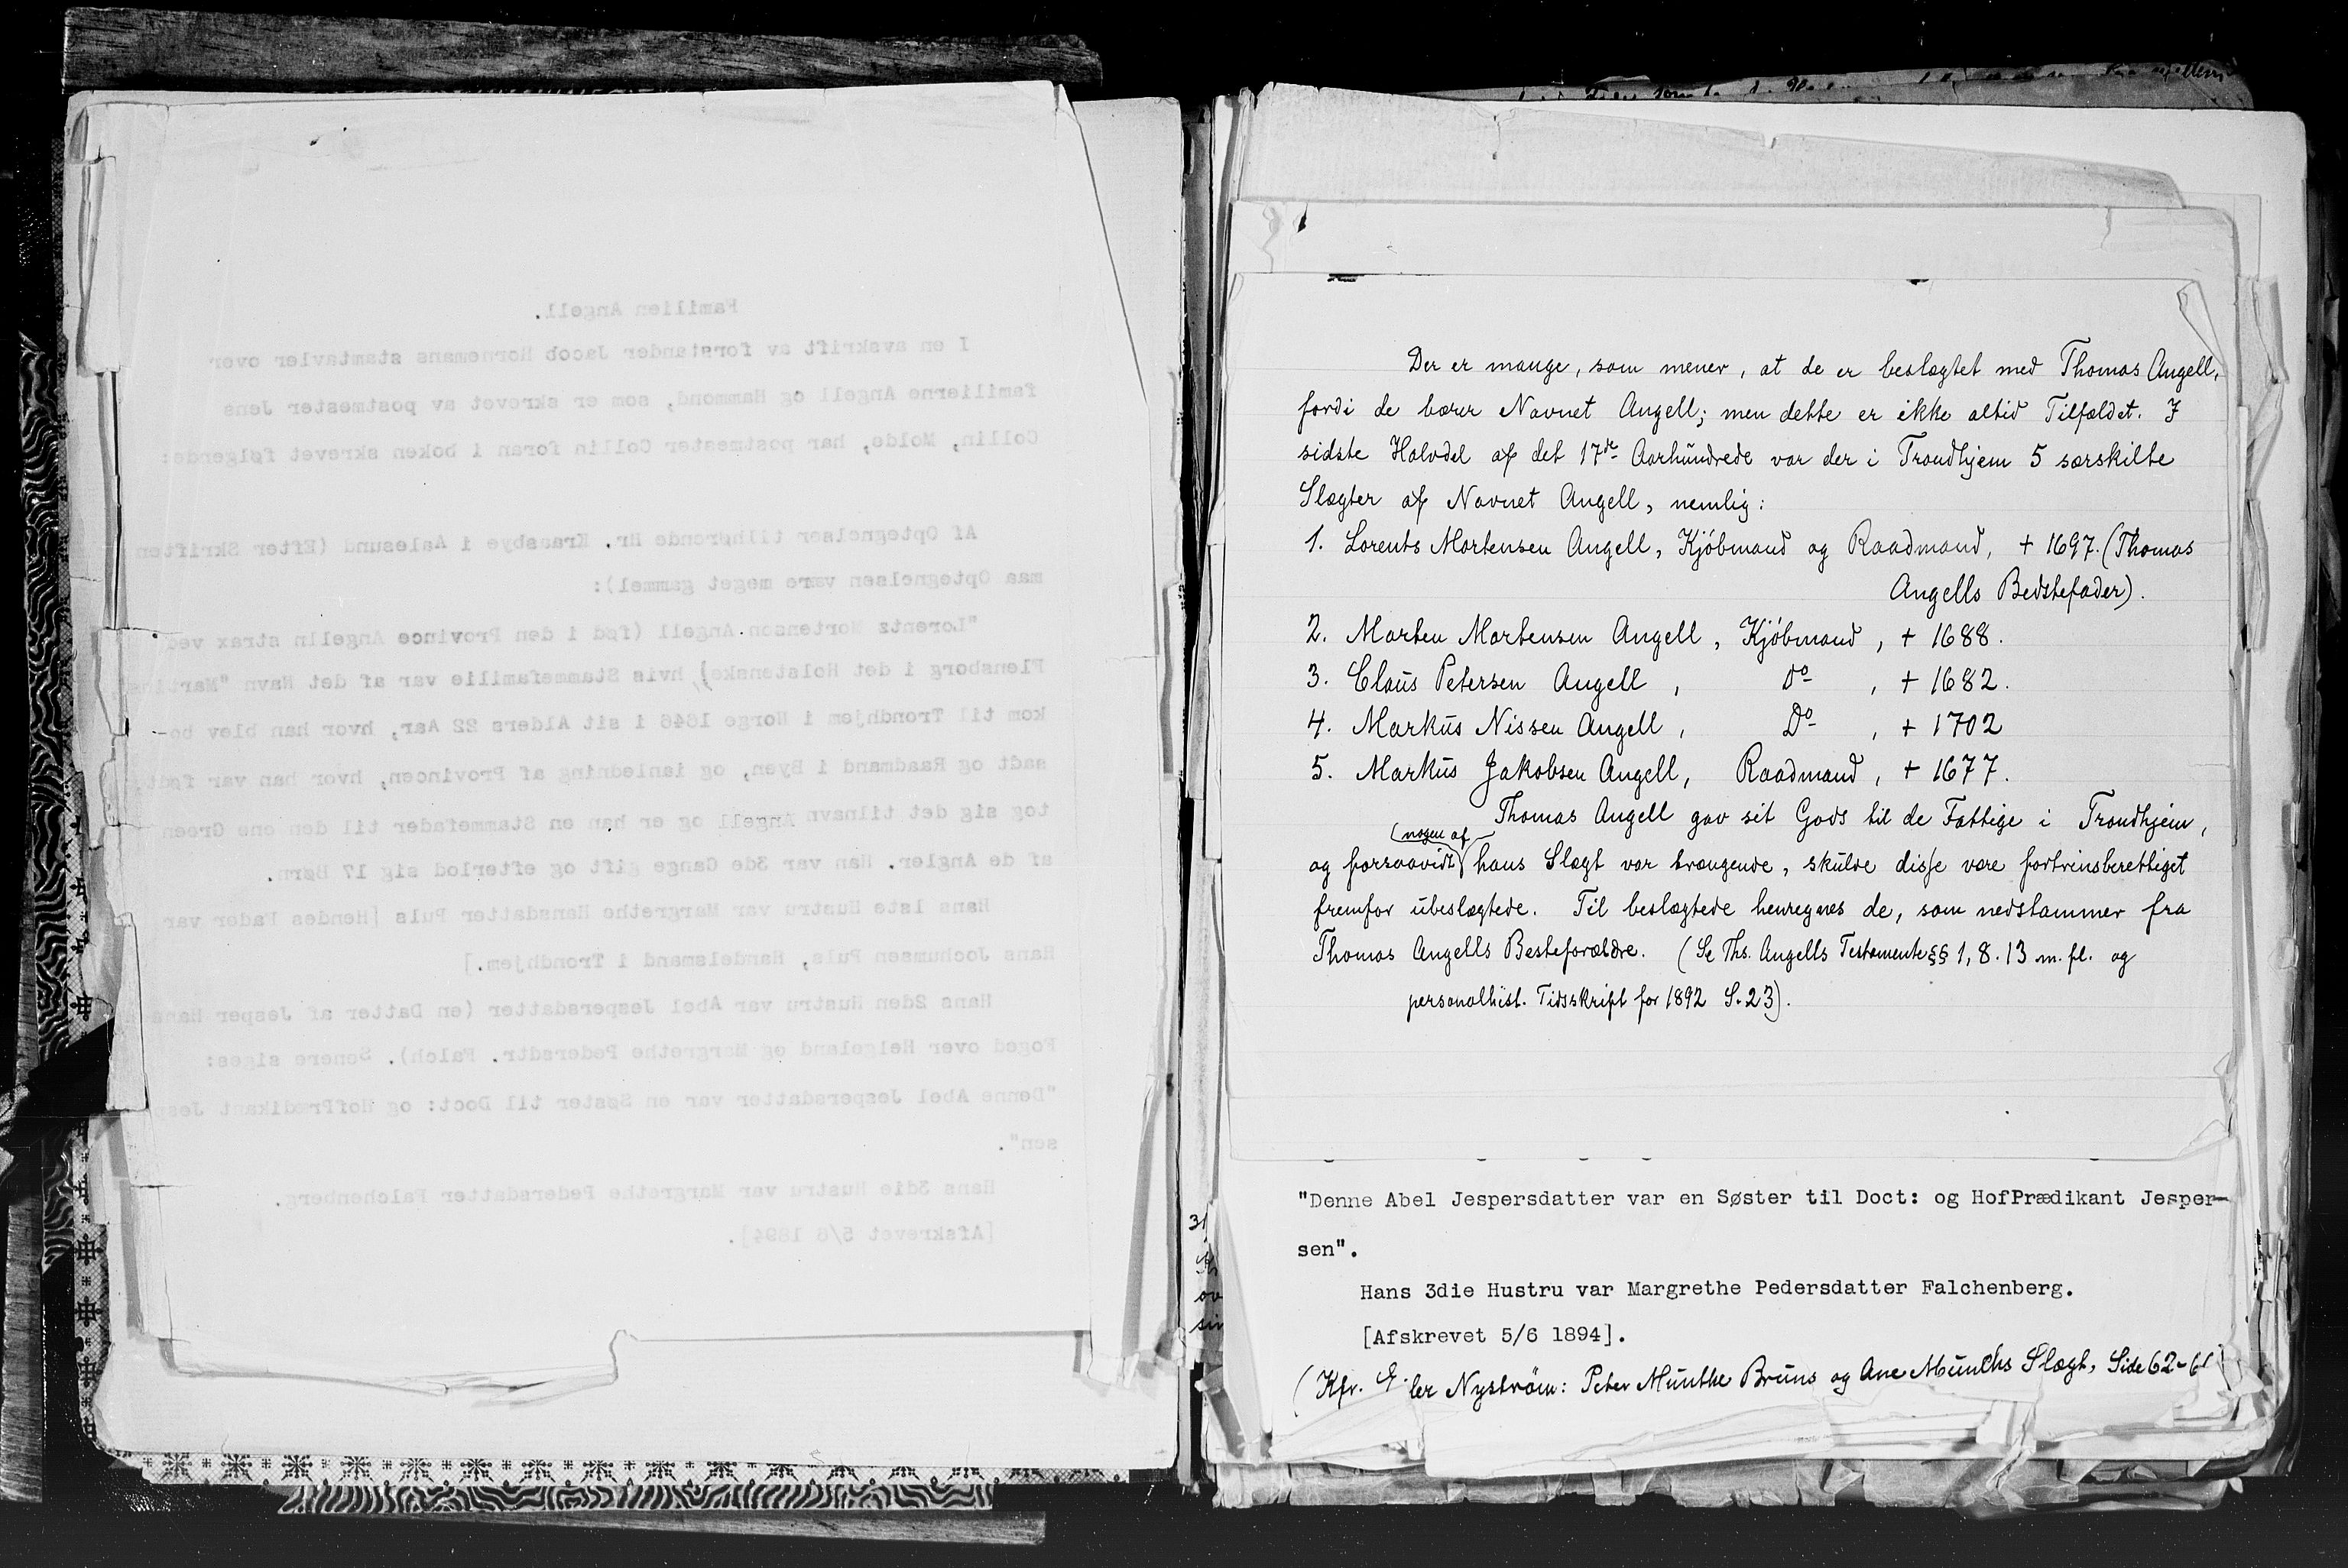 Familien Angell.
I en avskrift av forstander Jacob Hornemans stamtavler over
familierne Angell og Hammond, som er skrevet av postmester Jens
Collin, Molde, har postmester Collin foran i boken skrevet følgende:
Af Optegnelser tilhørende Hr. Kraasbye i Aalesund (Efter Skriften
maa Optegnelsen være meget gammel):
"Lorentz Mortensen Angell (fød i den Province Angelln strax ved
Flensborg i det Holstenske) hvis Stammefamilie var af det Navn
kom til Trondhjem i Norge 1646 i sit Alders 22 Aar, hvor han blev bo-
sadt og Raadmand i Byen, og ianledning af Provincen, hvor han var født,
tog sig det tilnavn Angell og er han en Stammefader til den ene Green
af de Angler. Han var 3de Gange gift og efterlod sig 17 Børn.
Hans 1ste Hustru var Margrethe Hansdatter Puls [Hendes Fader var
Hans Jochumsen Puls, Handelsmand i Trondhjem.]
Hans 2den Hustru var Abel Jespersdatter (en Datter af Jesper
Foged over Helgeland og Margrethe Pedersdtr. Falch). Senere siges:
"Denne Abel Jespersdatter var en Søster til Doct: og HofPrædikant
sen".
Hans 3die Hustru var Margrethe Pedersdatter Falchenberg.
[Afskrevet 5/6 1894].
Der er mange, som mener, at de er beslægtet med Thomas Angell,
fordi de bærer Navnet Angell; men dette er ikke altid Tilfældet. I
sidste Halvdel af det 17de Aarhundrede var der i Trondhjem 5 særskilte
Slægter af Navnet Angell, nemlig:
1. Lorents Mortensen Angell, Kjøbmand og Raadmand, + 1697. (Thomas
Angells Bedstefader).
2. Morten Mortensen Angell, Kjøbmand, + 1688.
3. Claus Petersen Angell, Do, + 1682.
4. Markus Nissen Angell, Do, + 1702
5. Markus Jakobsen Angell, Raadmand, + 1677.
Thomas Angell gav sit Gods til de Fattige i Trondhjem,
(nogen af
og forsaavidt hans Slægt var trængende, skulde disse være fortrinsberettiget
fremfor ubeslægtede. Til beslægtede henregnes de, som nedstammer fra
Thomas Angells Besteforældre. (Se Ths. Angells Testamente §§ 1, 8. 13 m. fl. og
personalhist. Tidsskrift for 1892 S. 23).
"Denne Abel Jespersdatter var en Søster til Doct: og HofPrædikant Jesper-
sen".
Hans 3die Hustru var Margrethe Pedersdatter Falchenberg.
[Afskrevet 5/6 1894].
(Kfr. Nyström: Peter Munthe Bruns og Ane Munchs Slægt, Side 62-